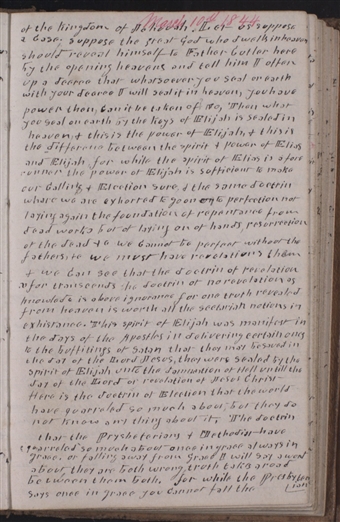 March 10th 1844
of the Kingdom of Jehovah. Let us suppose
a case. suppose the great God who dwells in heaven
should reveal himself to Father Cutler here
by the opening heavens and tell him I offer
up a decree that whatsoever you seal on earth
with your decree I will seal it in heaven, you have
power then, can it be taken of No, Then what
you seal on earth by the Keys of Elijah is sealed in
heaven, & this is the power of Elijah, & this is
the difference between the spirit & power of Elias
and Elijah, for while the spirit of Elias is a fore
runner the power of Elijah is sufficient to make
our calling & Election sure, & the same doctrin
where we are exhorted to go on to perfection not
laying again the foundation of repentance from
dead works but of laying on of hands, resurrection
of the dead &c we cannot be perfect without the
fathers, &c we must have revelations then
& we can see that the doctrin of revelation
as far transcends the doctrin of no revelation as
knowledge is above ignorance for one truth revealed
from heaven is worth all the sectarian notions in
exhistance. This spirit of Elijah was manifest in
the days of the Apostles in delivering certain ones
to the buffitings of Satan that they may be saved in
the day of the Lord Jesus, they were sealed by the
spirit of Elijah unto the damnation of Hell untill the
day of the Lord or revelation of Jesus Christ-
Here is the doctrin of Election that the world
have quarreled so much about but they do
not know any thing about it, The doctrin
that the Prysbeterians & Methodist have
quarreled so much about once in grace always in
grace, or falling away from grace I will say a word
about, they are both wrong, truth takes a road
between them both. for while the Presbyter
ian
says once in grace you cannot fall the